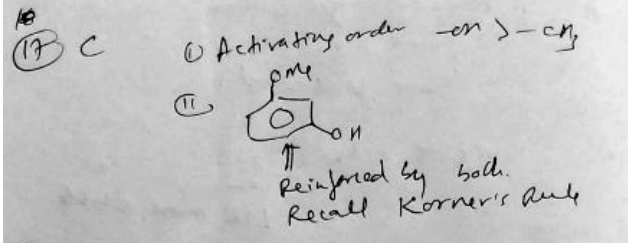 (17) C (i) Activating order -OH > -CH3
(ii) OMe
OH
Reinforced by both.
Recall Korner's Rule